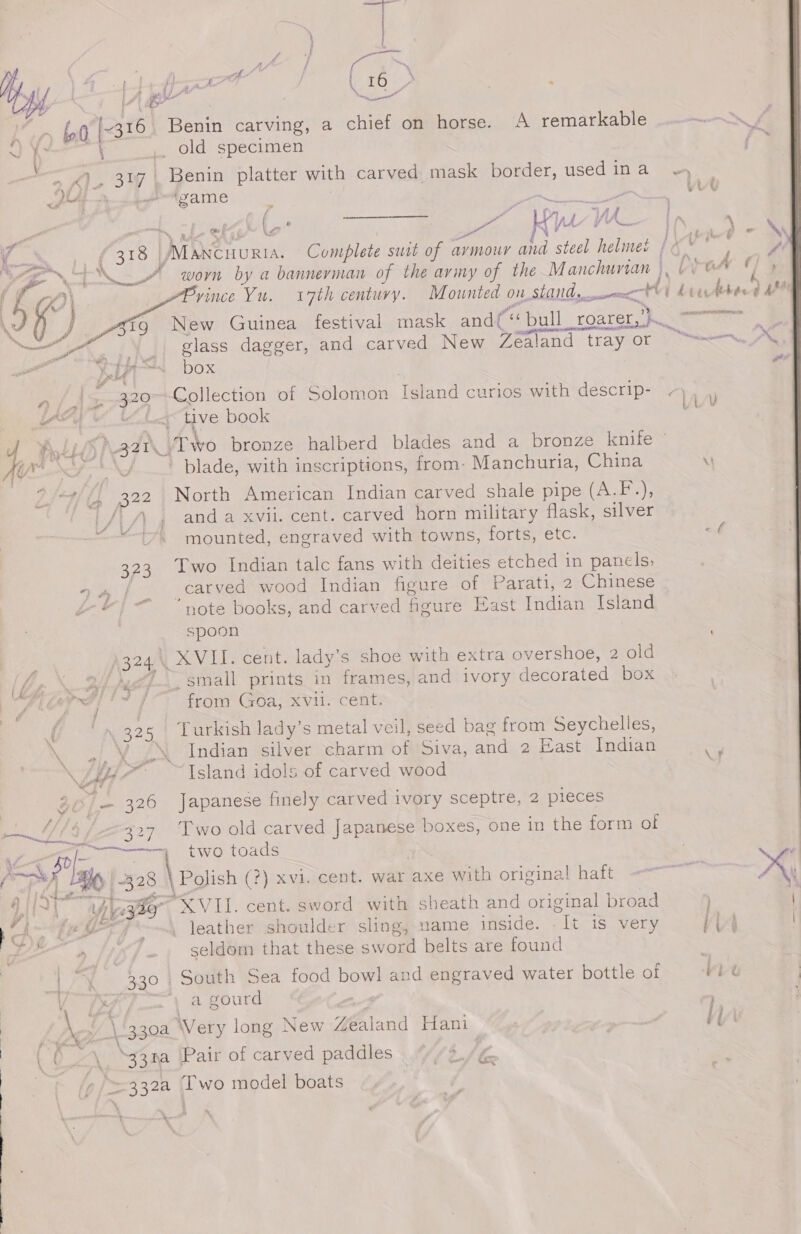 16
316 Benin carving, a chief on horse. A remarkable
old specimen
317 Benin platter with carved mask border, used in a
game
318 MANCHURIA. Complete suit of armour and steel helmet
worn by a bannerman of the army of the Manchurian
Prince Yu. 17th century. Mounted on stand,
319 New Guinea festival mask and “bull roarer,”
glass dagger, and carved New Zealand tray or
box
320 Collection of Solomon Island curios with descrip-
tive book
321 Two bronze halberd blades and a bronze knife
blade, with inscriptions, from Manchuria, China
322 North American Indian carved shale pipe (A.F.),
and a xvii. cent. carved horn military flask, silver
mounted, engraved with towns, forts, etc.
323 Two Indian talc fans with deities etched in panels,
carved wood Indian figure of Parati, 2 Chinese
note books, and carved figure East Indian Island
spoon
324 XVII. cent. lady’s shoe with extra overshoe, 2 old
small prints in frames, and ivory decorated box
from Goa, xvii. cent.
325 Turkish lady’s metal veil, seed bag from Seychelles,
Indian silver charm of Siva, and 2 East Indian
Island idols of carved wood
326 Japanese finely carved ivory sceptre, 2 pieces
327 Two old carved Japanese boxes, one in the form of
two toads
328 Polish (?) xvi. cent. war axe with original haft
329 XVII. cent. sword with sheath and original broad
leather shoulder sling, name inside. It is very
seldom that these sword belts are found
330 South Sea food bowl and engraved water bottle of
a gourd
330a Very long New Zealand Hani
331a Pair of carved paddles
332a Two model boats